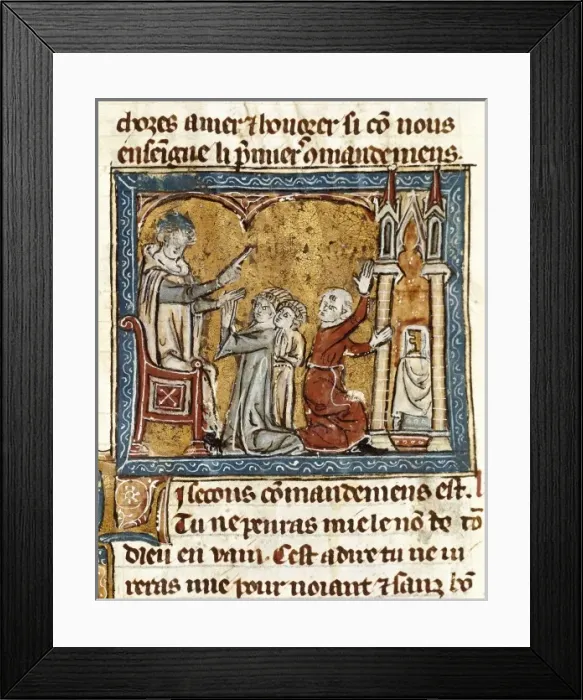 chozes amer ⁊ honorer si cō nous
enseigne li p̄mier ꝯmandemens.
I secons cōmandemens est.
Tu ne penras mie le nō de tō
dieu en vain. Cest adire tu ne iu
reras mie pour noiant ⁊ sanz bō